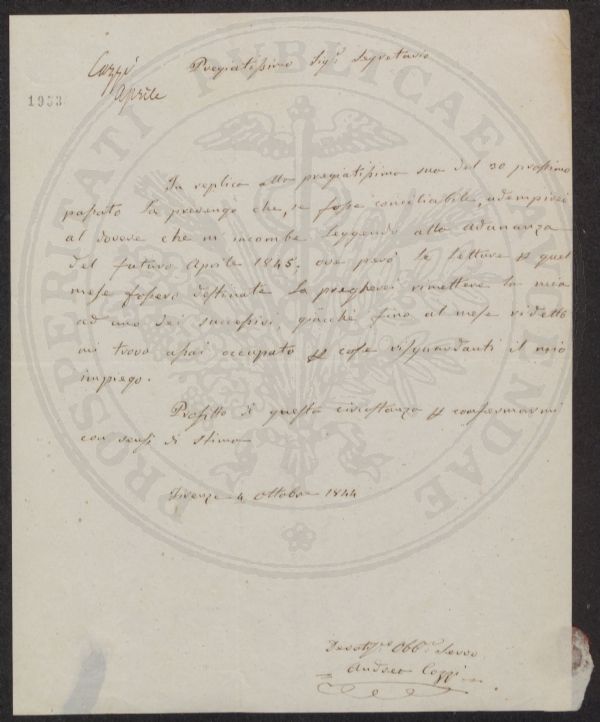 Cozzi
Aprile
1953
Pregiatissimo Sig.r Segretario
In replica alla pregiatissima sua del 30 prossimo
passato La prevengo che, se fosse conciliabile, adempirei
al dovere che m'incombe leggendo alla adunanza
del futuro Aprile 1845; ove però le letture p quel
mese fossero destinate La pregherei rimettere la mia
ad uno dei successivi, giacchè fino al mese ridetto
mi trovo assai occupato p cose risguardanti il mio
impiego.
Profitto di questa circostanza p confermarmi
con sensi di stima
Firenze 4 Ottobre 1844
Devotis.mo Obb.o Servo
Andrea Cozzi
PROSPERITATI PUBLICAE AUGENDAE